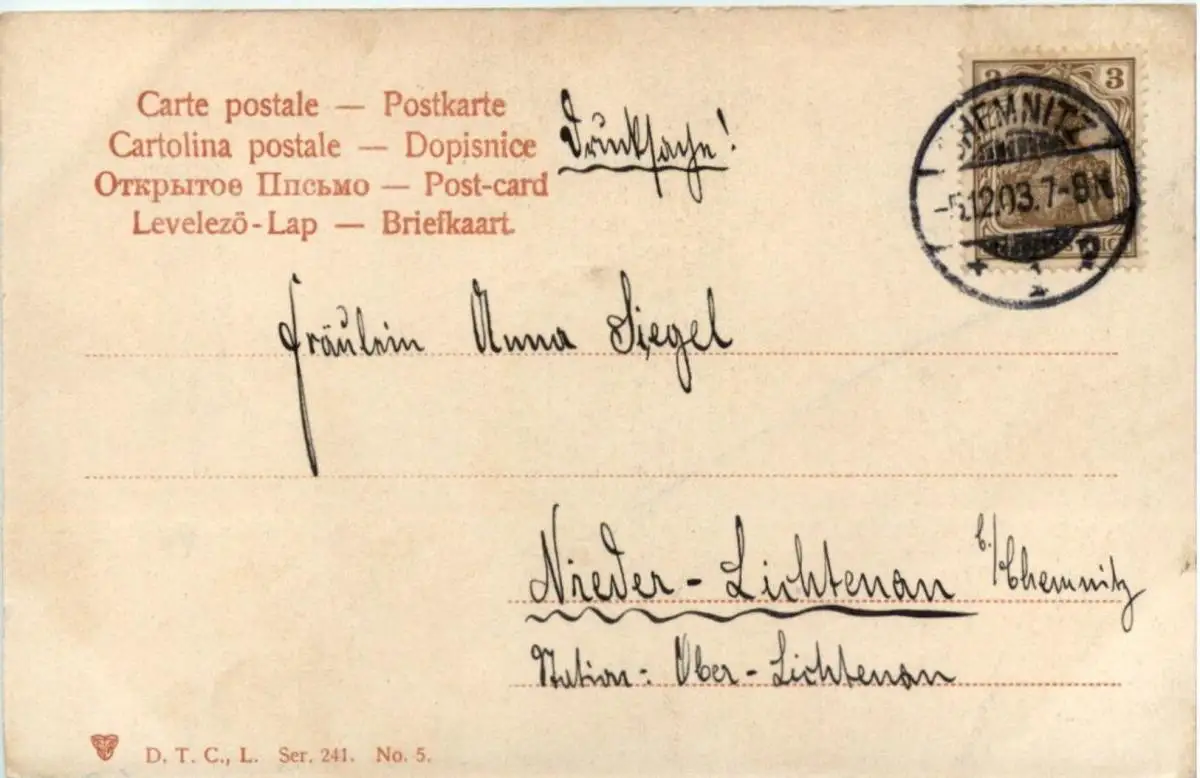 Carte postale — Postkarte
Cartolina postale — Dopisnice
Открытое Письмо — Post-card
Levelezö-Lap — Briefkaart
Drucksache!
3 3
CHEMNITZ
-5.12.03. 7-8N.
* 1
Fräulein Anna Siegel
Nieder-Lichtenau b/Chemnitz
Station: Ober-Lichtenau
D. T. C., L. Ser. 241. No. 5.